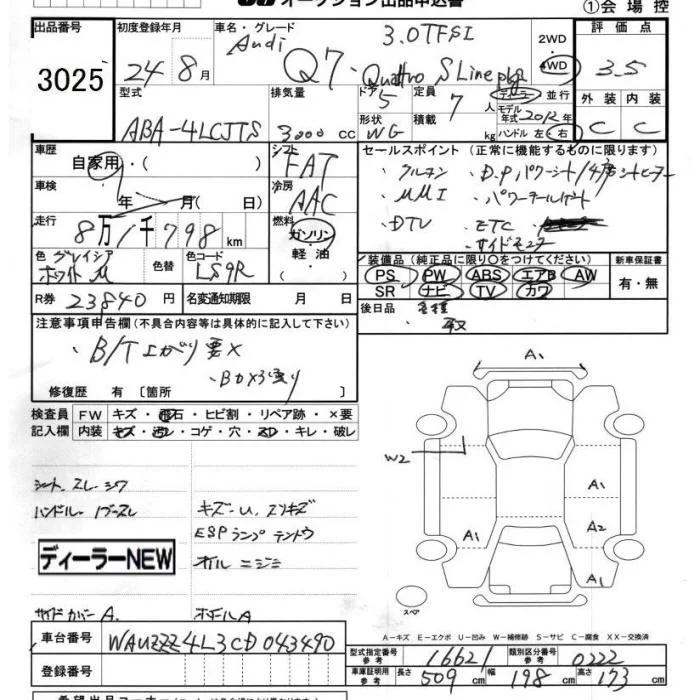 オークション出品申込書 ①会場控
出品番号 初度登録年月 車名・グレード 評価点
3025 24年8月 Audi Q7・3.0TFSI Quattro S Line pkg 2WD 4WD 3.5
型式 排気量 ドア 定員 ディーラー 並行 外装 内装
ABA-4LCJTS 3000cc 5 7人 モデル年式2012 C C
形状 WG 積載 kg ハンドル 左・右
車歴 シフト セールスポイント (正常に機能するものに限ります)
自家用・( ) FAT ・クルコン ・D.Pパワーシート/4席シートヒーター
車検 冷房 ・MMI ・パワーテールゲート
年 月( 日) AAC ・DTV ・ETC
走行 燃料 ・サイドモニター
8万1千798km ガソリン・軽油・( )
色 グレイシアホワイトM 色替 色コード LS9R 装備品 (純正品に限り○をつけてください) 新車保証書
PS PW ABS エアB AW 有・無
SR ナビ TV カワ
R券 23840円 名変通知期限 月 日 後日品 各種
・取
注意事項申告欄 (不具合内容等は具体的に記入して下さい)
・B/T上がり要×
修復歴 有 〔箇所 〕
A1
検査員 FW キズ・飛石・ヒビ割・リペア跡・×要
記入欄 内装 キズ・汚レ・コゲ・穴・スレ・キレ・破レ
W2
シート.スレ-シワ A1
ハンドル- キズ-U.スリキズ
ESPランプテントウ A1 A2
ディーラーNEW オイルニジミ
A1
スペア
サイドカバーA. ホイールA
A-キズ E-エクボ U-凹み W-補修跡 S-サビ C-腐食 XX-交換済
車台番号 WAUZZZ4L3CD043490 型式指定番号 参考 16621 類別区分番号 参考 0222
登録番号 車庫証明用 参考 長さ 509cm 幅 198cm 高さ 173cm